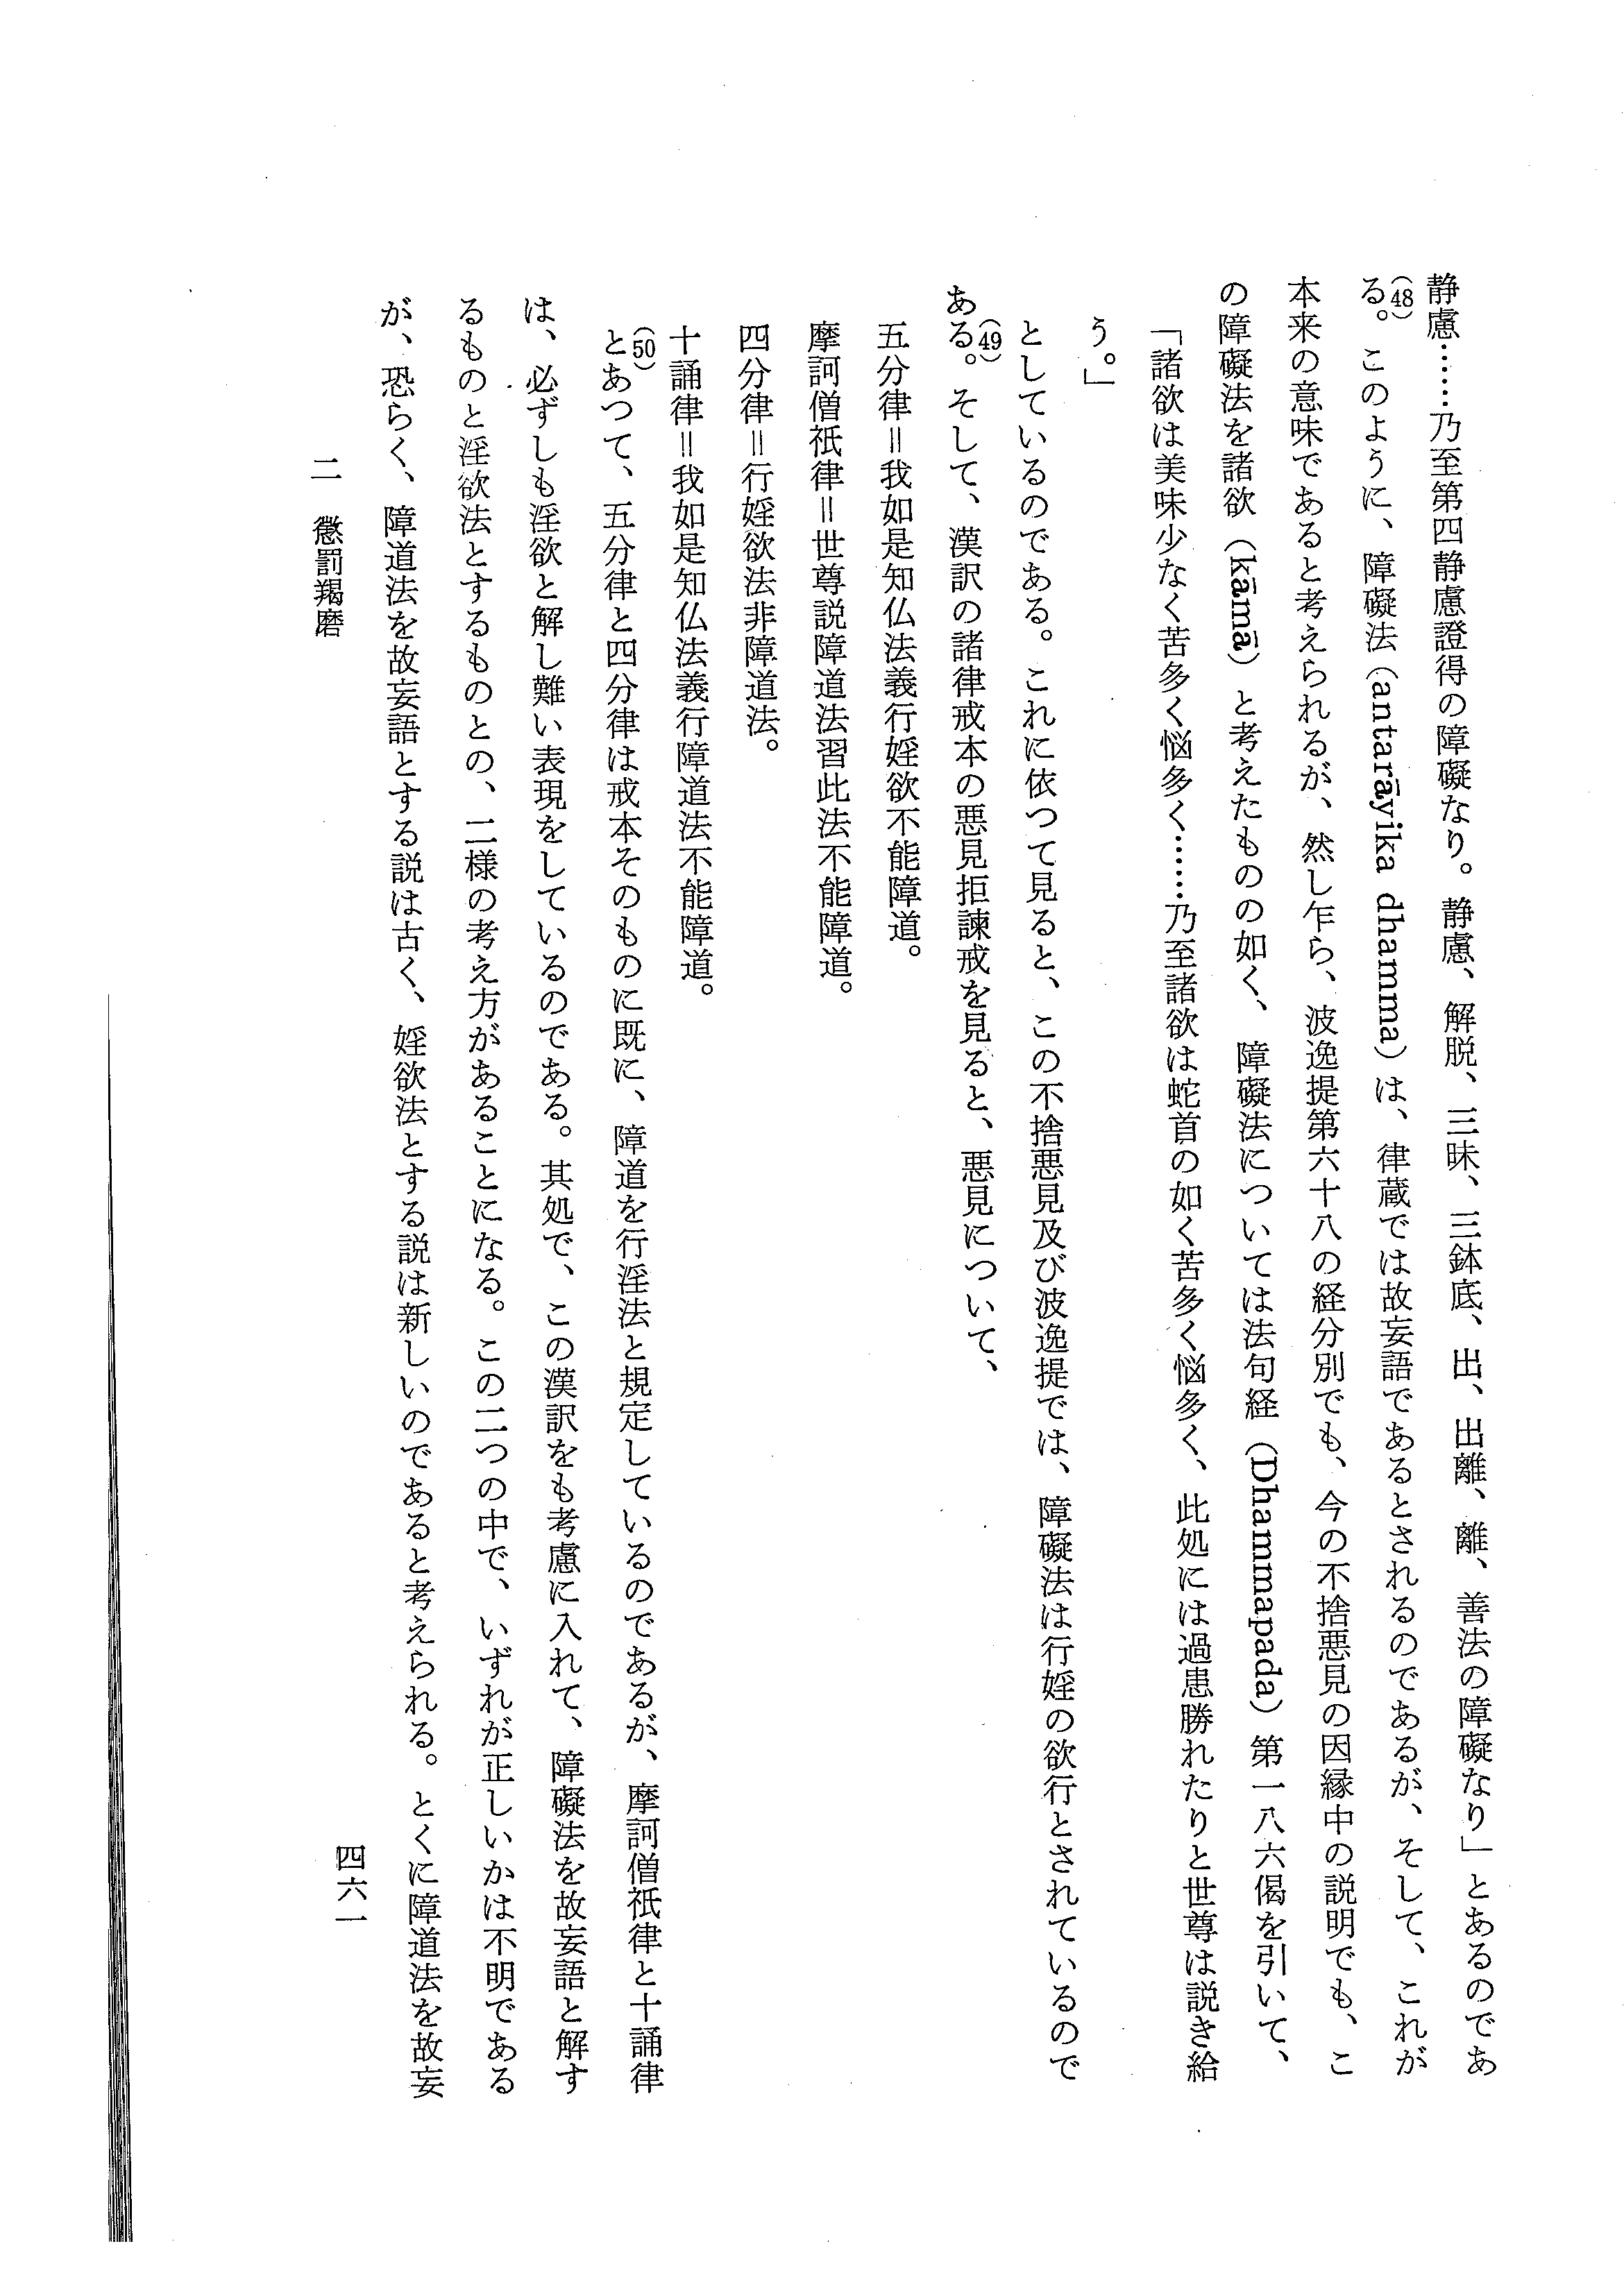 静慮……乃至第四静慮證得の障礙なり。静慮、解脱、三昧、三鉢底、出、出離、離、善法の障礙なり」とあるのであ
(48)
る。このように、障礙法（antarāyika dhamma）は、律蔵では故妄語であるとされるのであるが、そして、これが
本来の意味であると考えられるが、然し乍ら、波逸提第六十八の経分別でも、今の不捨悪見の因縁中の説明でも、こ
の障礙法を諸欲（kāmā）と考えたものの如く、障礙法については法句経（Dhammapada）第一八六偈を引いて、
「諸欲は美味少なく苦多く悩多く……乃至諸欲は蛇首の如く苦多く悩多く、此処には過患勝れたりと世尊は説き給
う。」
としているのである。これに依つて見ると、この不捨悪見及び波逸提では、障礙法は行婬の欲行とされているので
(49)
ある。そして、漢訳の諸律戒本の悪見拒諫戒を見ると、悪見について、
五分律＝我如是知仏法義行婬欲不能障道。
摩訶僧祇律＝世尊説障道法習此法不能障道。
四分律＝行婬欲法非障道法。
十誦律＝我如是知仏法義行障道法不能障道。
(50)
とあつて、五分律と四分律は戒本そのものに既に、障道を行淫法と規定しているのであるが、摩訶僧祇律と十誦律
は、必ずしも淫欲と解し難い表現をしているのである。其処で、この漢訳をも考慮に入れて、障礙法を故妄語と解す
るものと淫欲法とするものとの、二様の考え方があることになる。この二つの中で、いずれが正しいかは不明である
が、恐らく、障道法を故妄語とする説は古く、婬欲法とする説は新しいのであると考えられる。とくに障道法を故妄
二　懲罰羯磨
四六一